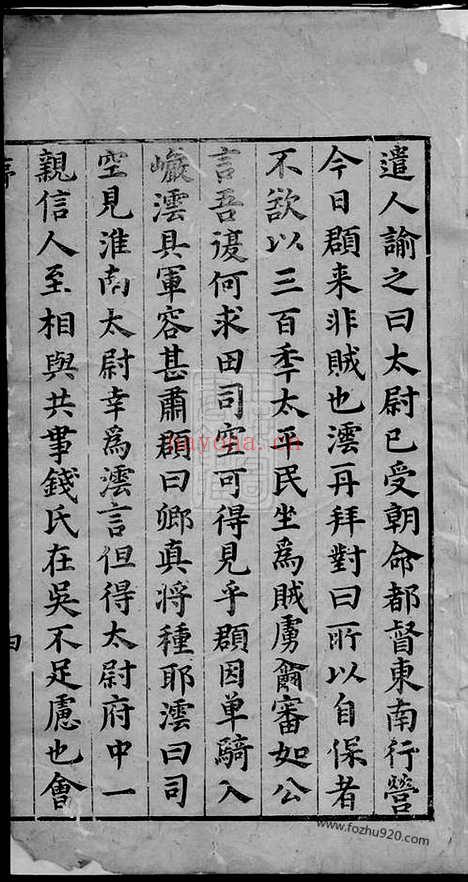 遣人諭之曰太尉已受朝命都督東南行營
今日頵来非賊也澐再拜對曰所以自保者
不欲以三百秊太平民坐爲賊虜龠審如公
言吾復何求田司空可得見乎頵因单騎入
巗澐具軍容甚肅頵曰卿真将種耶澐曰司
空見淮南太尉幸爲澐言但得太尉府中一
親信人至相與共事錢氏在吴不足慮也會
hayona.cn
www.fozhu920.com